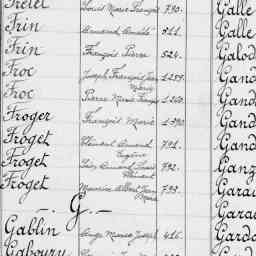 Frelet Louis Marie François 730.
Frin Armand Aimable 511.
Frin François Pierre 524.
Froc Joseph François Jean Marie 1259.
Froc Pierre Marie François 1260.
Froger François Marie 1390.
Froget Clément Armand Eugène 791.
Froget Léon Armand Clément 792.
Froget Maurice Albert Jean Marie 793.
G.
Gablin Ange Marie Joseph 416.
Gaboury
Galle
Galle
Galo
Gand
Gand
Gand
Gand
Ganz
Garai
Garai
Gard